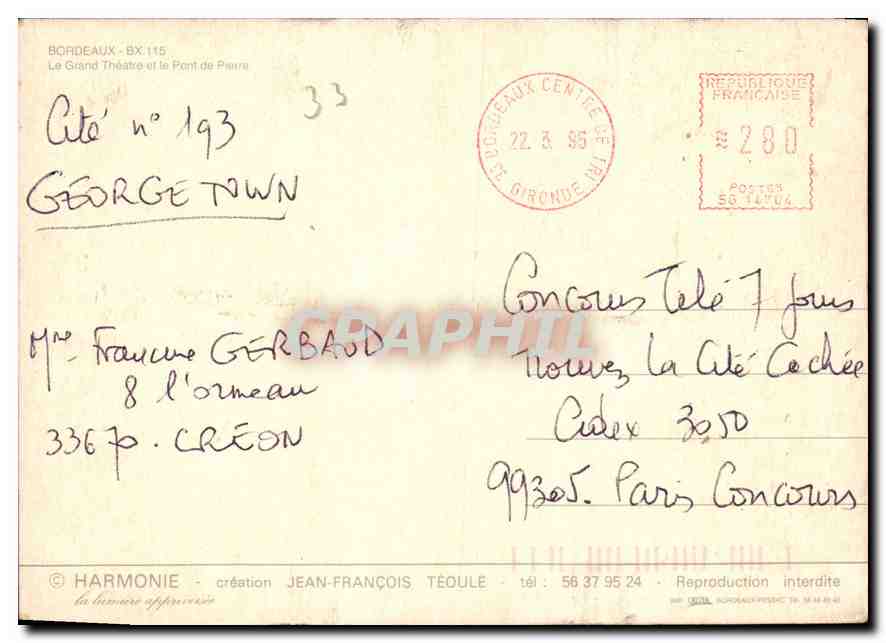 BORDEAUX - BX.115
Le Grand Théatre et le Pont de Pierre
33
Cité n° 193
GÉORGETOWN
33 BORDEAUX CENTRE DE TRI
22. 3. 95
GIRONDE
REPUBLIQUE
FRANCAISE
280
POSTES
SG 14704
CPAPHIL
Mme Francine GERBAUD
8 l'ormeau
33670. CRÉON
Concours Télé 7 jours
Trouvez la Cité Cachée
Cidex 3050
99305. Paris Concours
© HARMONIE - création JEAN-FRANÇOIS TÉOULÉ - tél : 56 37 95 24 - Reproduction interdite
la lumière apprivoisée
BORDEAUX-PESSAC